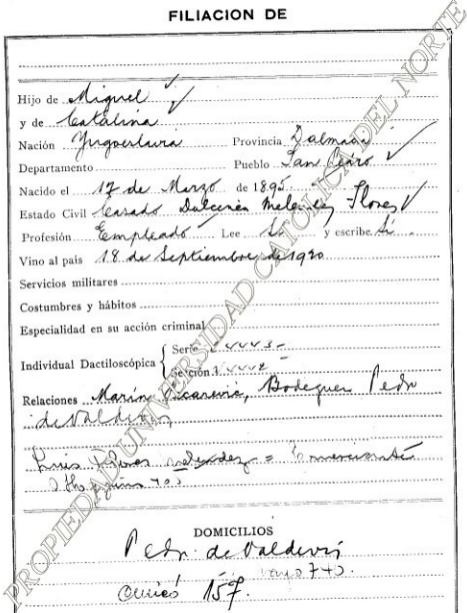 FILIACION DE
Hijo de Miguel
y de Catalina
Nación Yugoeslavia Provincia Dalmacia
Departamento Pueblo San Pedro
Nacido el 17 de Marzo de 1895.
Estado Civil Casado Dulcinea Melendez Flores
Profesión Empleado Lee Si y escribe Si
Vino al país 18 de Septiembre de 1920
Servicios militares
Costumbres y hábitos
Especialidad en su acción criminal
Individual Dactiloscópica { Serie
Sección
Relaciones Marín Vicarevic, Bodeguero Pedro
de Valdivia
Luis Flores Melendez = Comerciante
DOMICILIOS
Pedro de Valdivia
157.
PROPIEDAD UNIVERSIDAD CATOLICA DEL NORTE